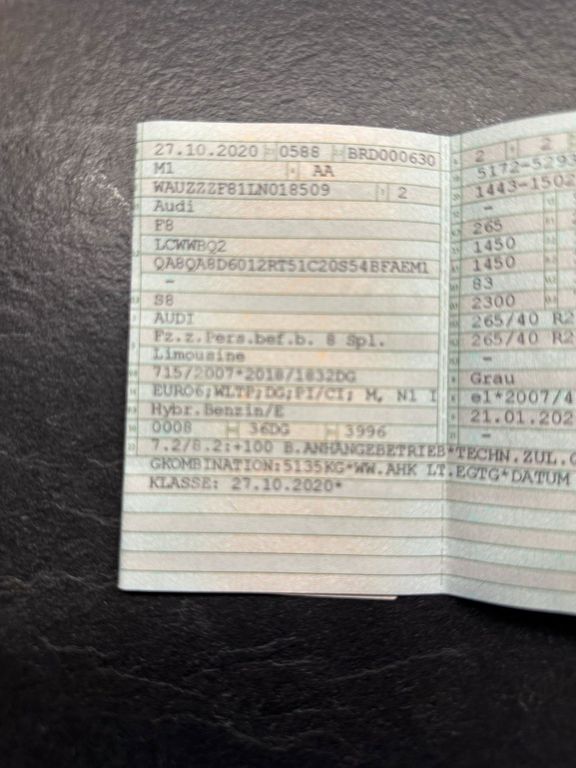 27.10.2020 0588 BRD000630
M1 AA
WAUZZZF81LN018509 2
Audi
F8
LCWWBQ2
QA8QA8D6012RT51C20S54BFAEM1
-
S8
AUDI
Fz.z.Pers.bef.b. 8 Spl.
Limousine
715/2007*2018/1832DG
EURO6;WLTP;DG;PI/CI; M, N1 I
Hybr.Benzin/E
0008 36DG 3996
7.2/8.2:+100 B.ANHÄNGEBETRIEB*TECHN.ZUL.G
GKOMBINATION:5135KG*WW.AHK LT.EGTG*DATUM
KLASSE: 27.10.2020*
2 2
5172-5293
1443-1502
-
265
1450
1450
83
2300
265/40 R2
265/40 R2
-
Grau
e1*2007/4
21.01.202
-